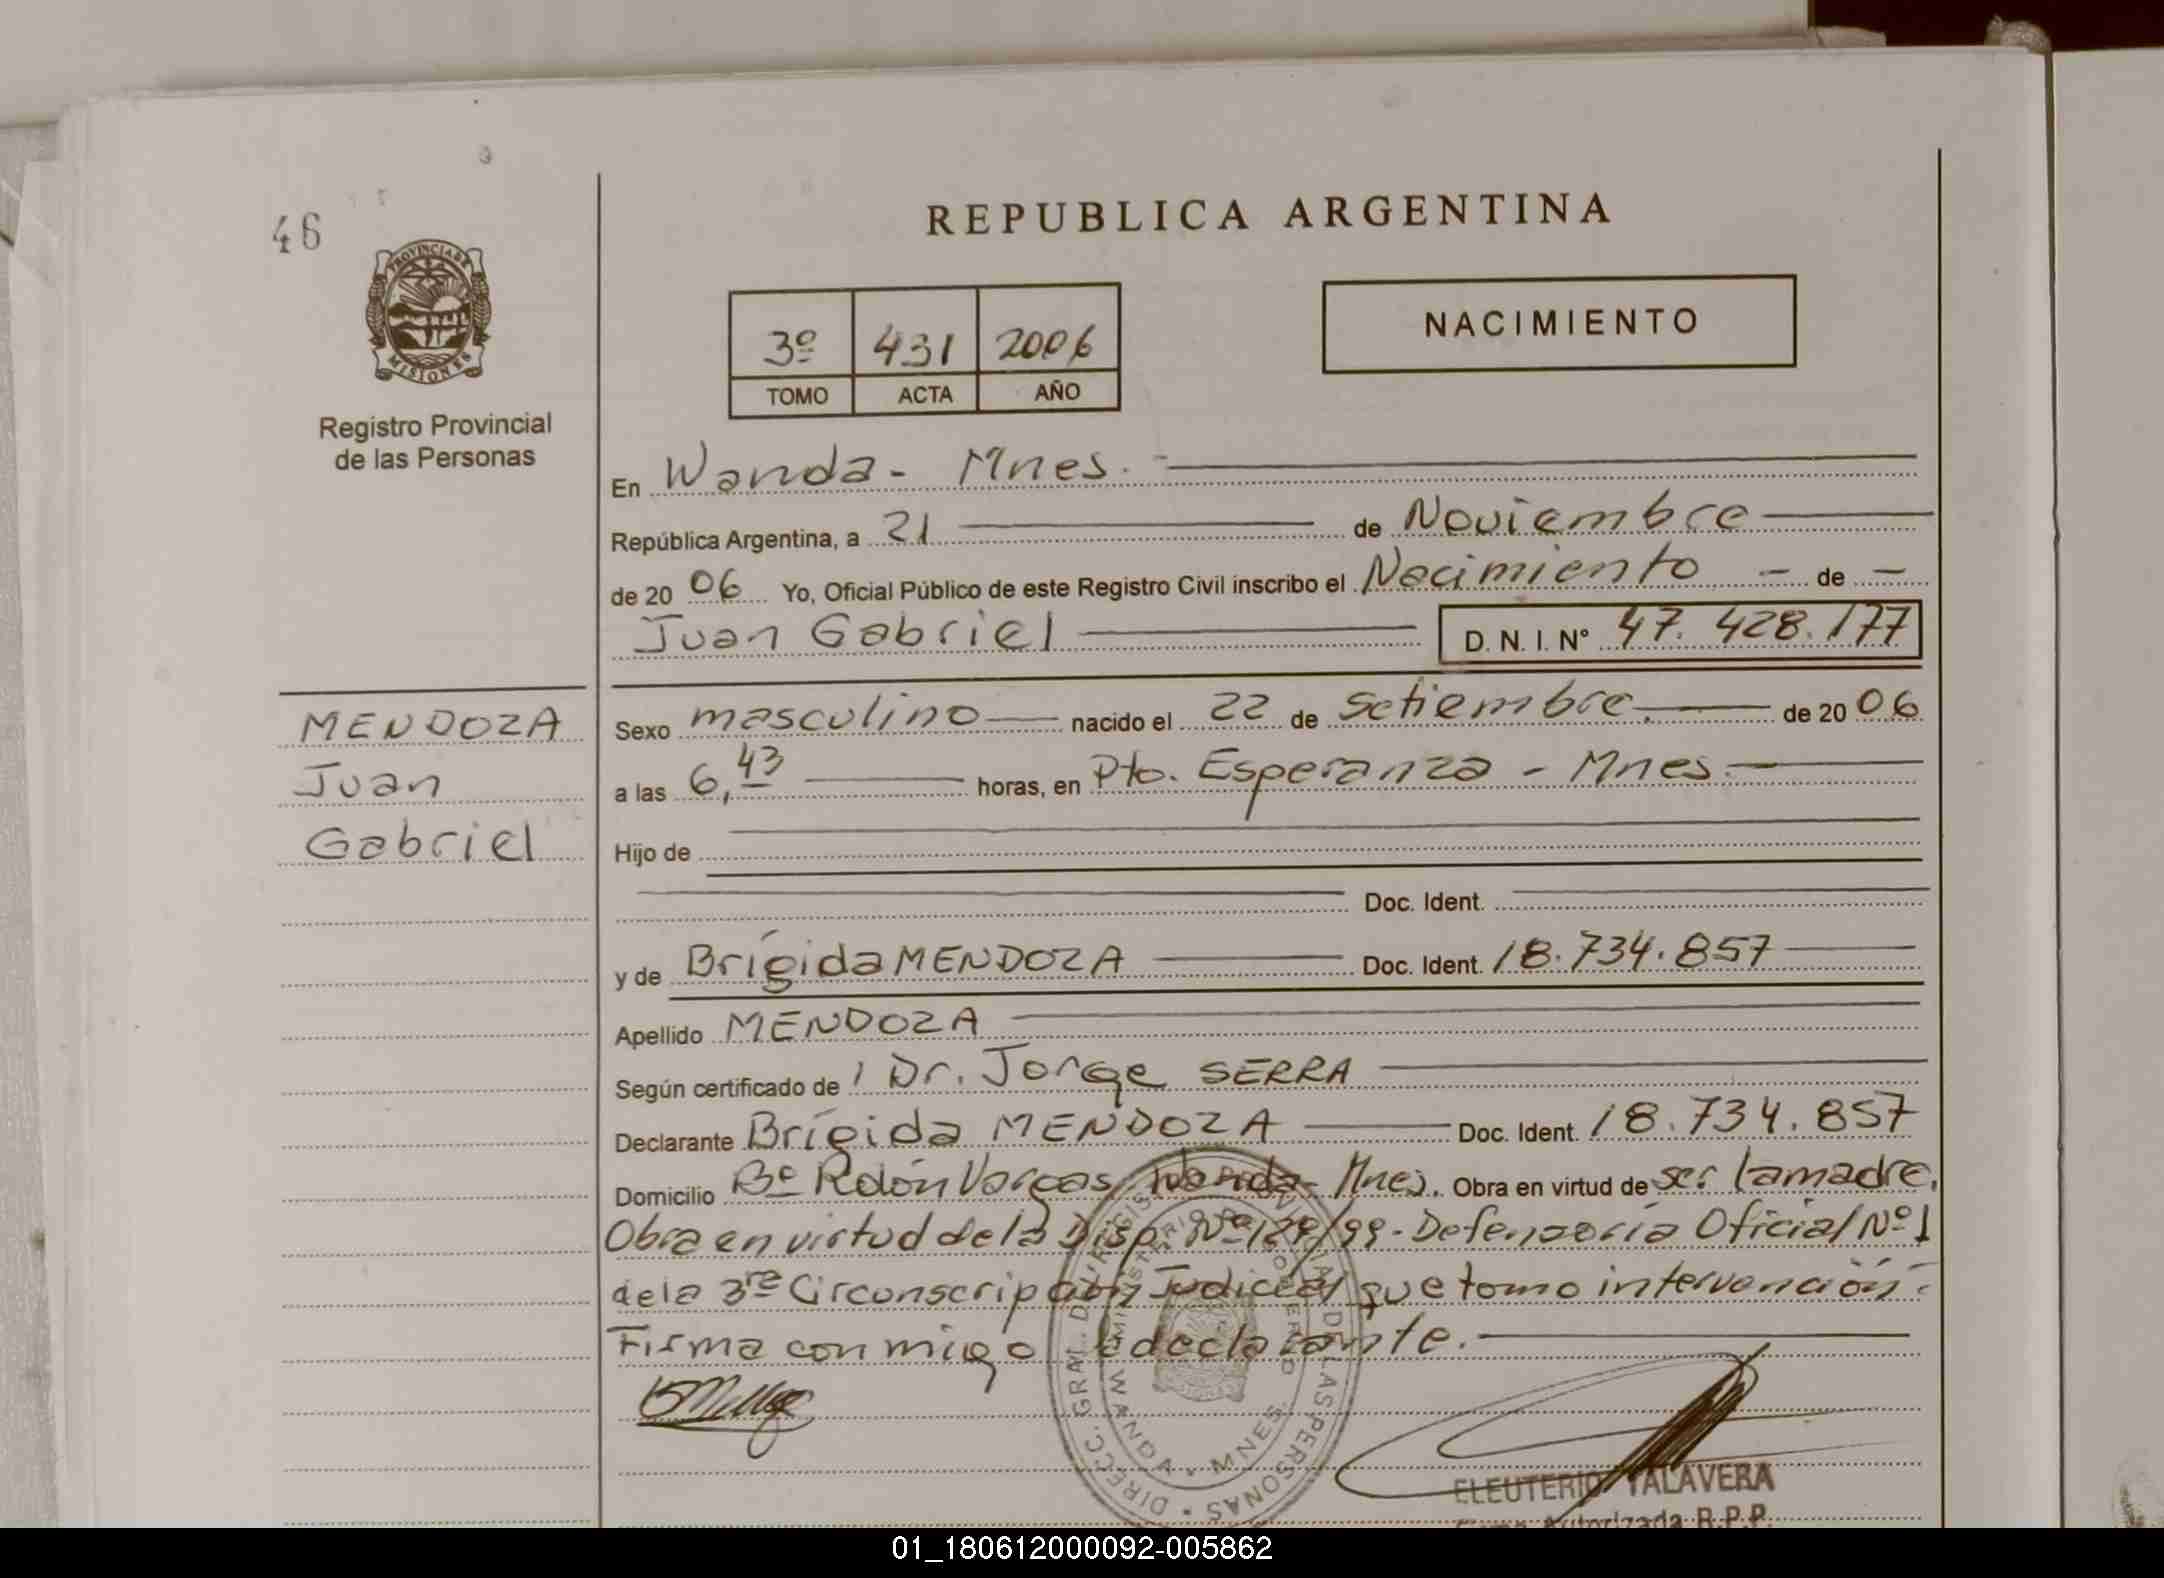 46
PROVINCIA DE
MISIONES
Registro Provincial
de las Personas
REPUBLICA ARGENTINA
3º 431 2006
TOMO ACTA AÑO
NACIMIENTO
En Wanda - Mnes.
República Argentina, a 21 de Noviembre
de 20 06 Yo, Oficial Público de este Registro Civil inscribo el Nacimiento - de -
Juan Gabriel D. N. I. N° 47.428.177
MENDOZA
Juan
Gabriel
Sexo masculino nacido el 22 de Setiembre. de 20 06
a las 6,43 horas, en Pto. Esperanza - Mnes.
Hijo de
Doc. Ident.
y de Brígida MENDOZA Doc. Ident. 18.734.857
Apellido MENDOZA
Según certificado de Dr. Jorge SERRA
Declarante Brígida MENDOZA Doc. Ident. 18.734.857
Domicilio Bº Rolón Vargas Wanda - Mnes. Obra en virtud de ser la madre.
Obra en virtud de la Disp. Nº 129/99 - Defensoría Oficial Nº 1
de la 3ra Circunscripción Judicial que tomo intervención.
Firma conmigo la declarante.
DIRECC. GRAL. DEL REGISTRO PROVINCIAL DE LAS PERSONAS
MINISTERIO DE GOBIERNO
WANDA - MNES.
ELEUTERIO TALAVERA
Firma Autorizada R.P.P.
01_180612000092-005862